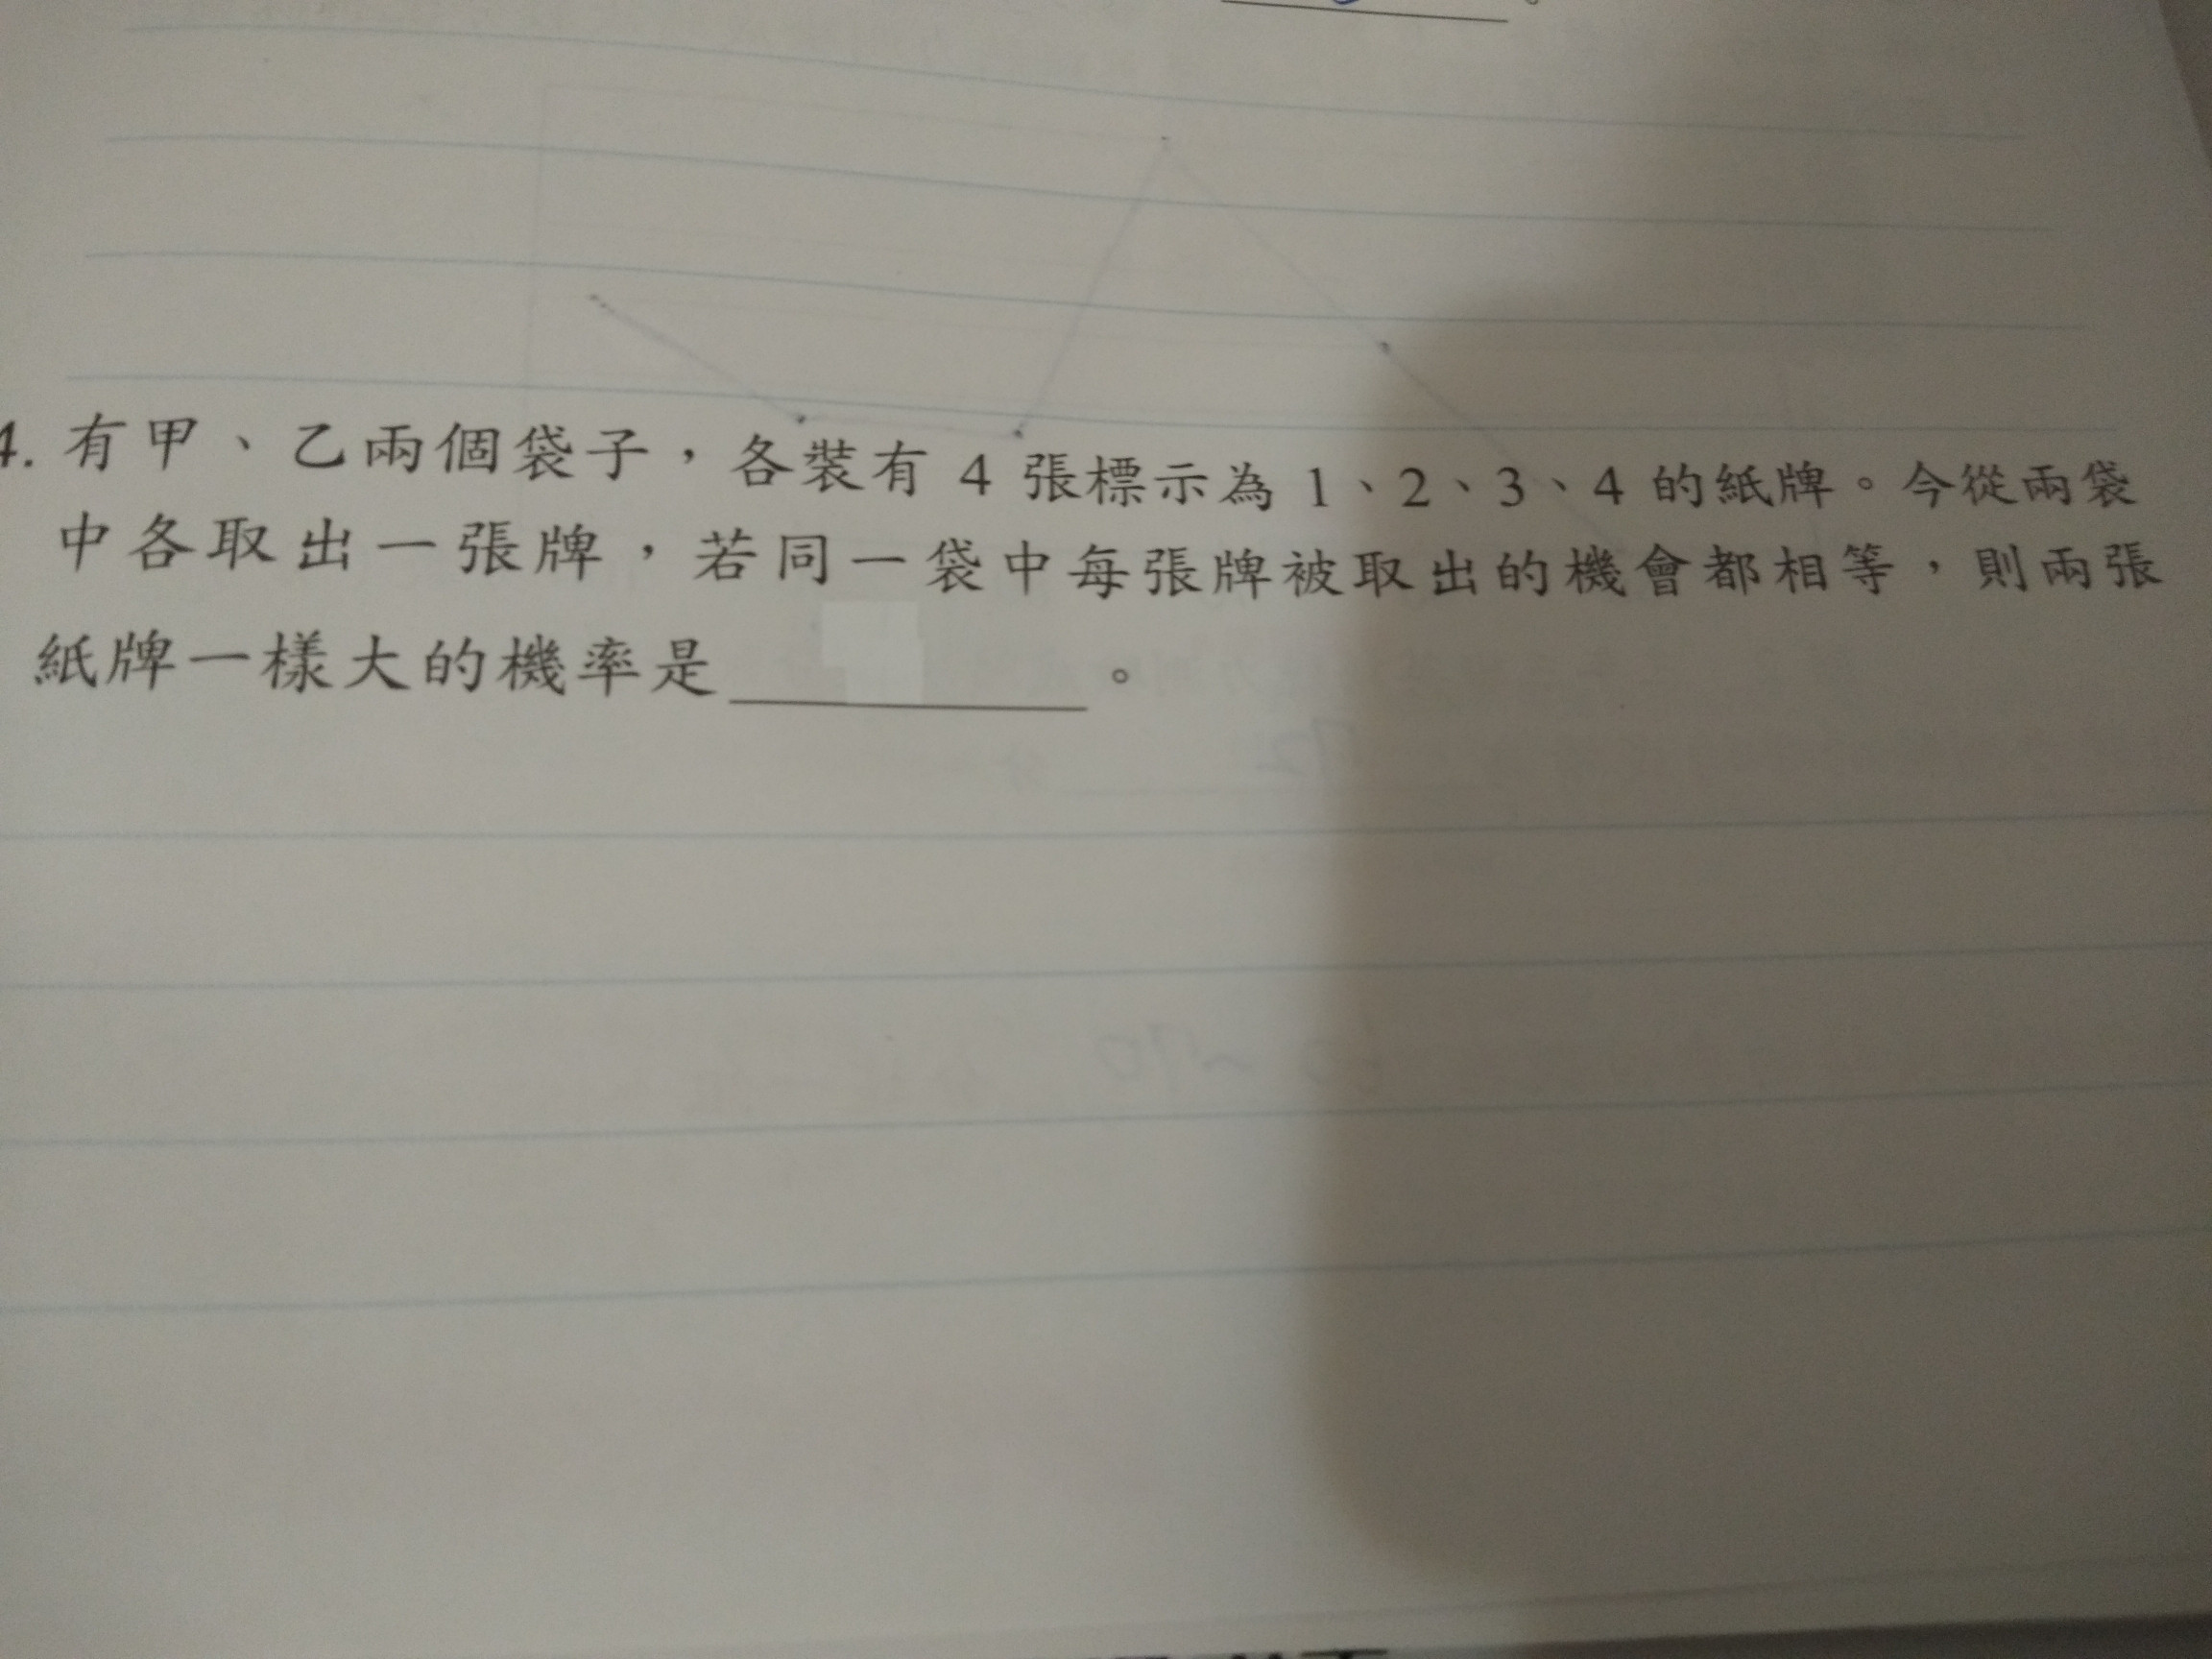 4. 有甲、乙兩個袋子，各裝有 4 張標示為 1、2、3、4 的紙牌。今從兩袋
中各取出一張牌，若同一袋中每張牌被取出的機會都相等，則兩張
紙牌一樣大的機率是＿＿＿＿＿。